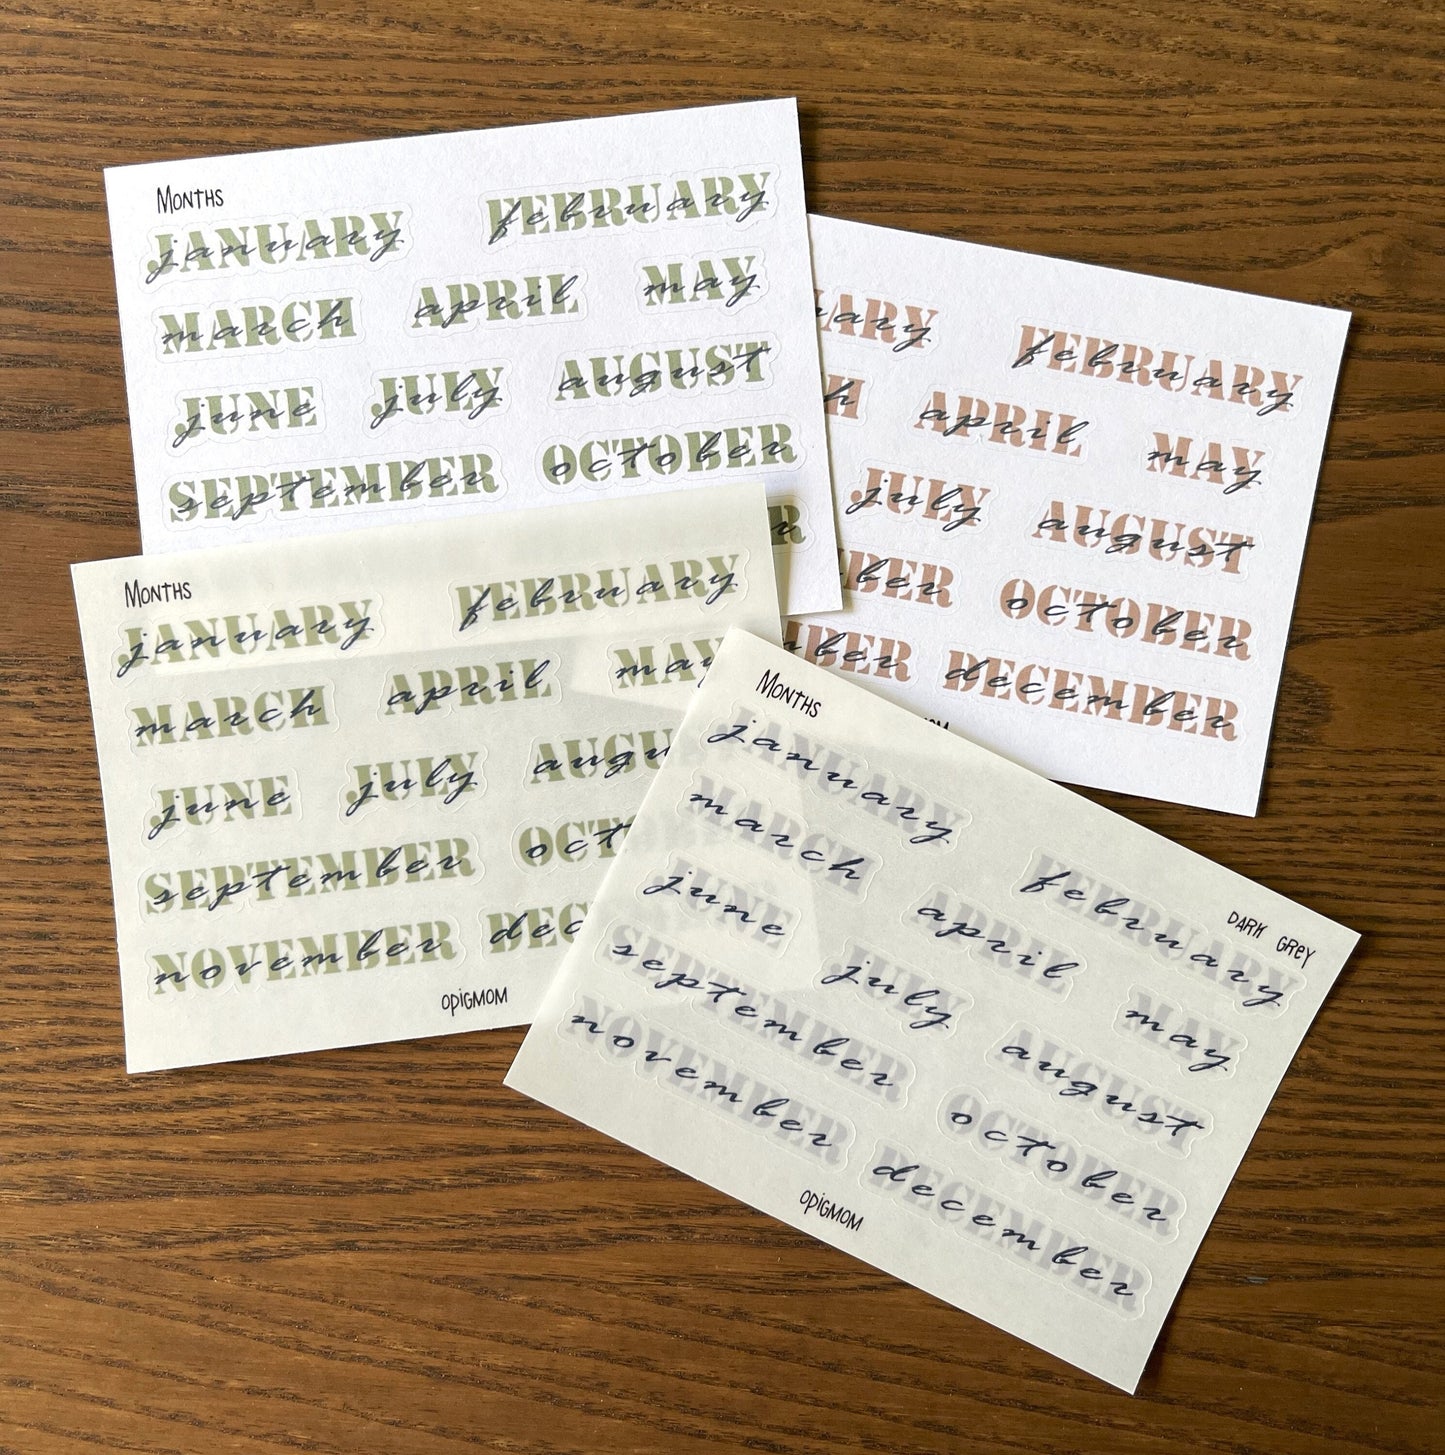 MONTHS
JANUARY january FEBRUARY february
MARCH march APRIL april MAY may
JUNE june JULY july AUGUST august
SEPTEMBER september OCTOBER october
FEBRUARY february
APRIL april MAY may
JULY july AUGUST august
BER ber OCTOBER october
MBER mber DECEMBER december
MONTHS
JANUARY january FEBRUARY february
MARCH march APRIL april MAY may
JUNE june JULY july AUGU augu
SEPTEMBER september OCT oct
NOVEMBER november DEC dec
OPIGMOM
MONTHS
DARK GREY
JANUARY january FEBRUARY february
MARCH march APRIL april MAY may
JUNE june JULY july AUGUST august
SEPTEMBER september OCTOBER october
NOVEMBER november DECEMBER december
OPIGMOM